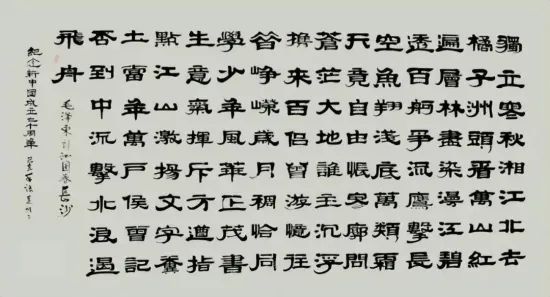 獨立寒秋湘江北去
橘子洲頭看萬山紅
遍層林盡染漫江碧
透百舸爭流鷹擊長
空魚翔淺底萬類霜
天竟自由悵寥廓問
蒼茫大地誰主沉浮
攜來百侶曾游憶往
昔崢嶸歲月稠恰同
學少年風華正茂書
生意氣揮斥方遒指
點江山激揚文字糞
土當年萬戶侯曾記
否到中流擊水浪遏
飛舟
毛澤東詞沁園春長沙
紀念新中国成立十周年